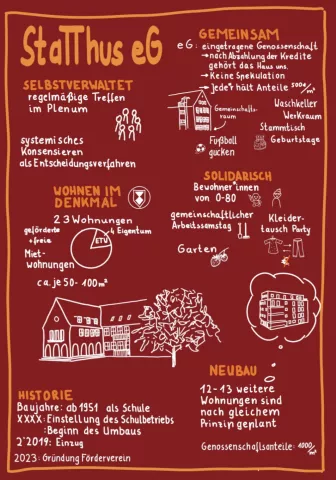 StaTThus eG
SELBSTVERWALTET
regelmäßige Treffen
im Plenum
systemisches
Konsensieren
als Entscheidungsverfahren
GEMEINSAM
eG: eingetragene Genossenschaft
→ nach Abzahlung der Kredite
gehört das Haus uns.
→ Keine Spekulation
→ jede*r hält Anteile 500€/m²
Gemeinschafts-
raum
Waschkeller
Werkraum
Stammtisch
Geburtstage
Fußball
gucken
WOHNEN IM
DENKMAL
23 Wohnungen
geförderte
+freie
Miet-
wohnungen
ETW
4 Eigentum
ca. je 50-100m²
SOLIDARISCH
Bewohner*innen
von 0-80
gemeinschaftlicher
Arbeitssamstag
Kleider-
tausch Party
Garten
HISTORIE
Baujahre: ab 1951 als Schule
XXXX: Einstellung des Schulbetriebs
: Beginn des Umbaus
2*2019: Einzug
2023: Gründung Förderverein
NEUBAU
12-13 weitere
Wohnungen sind
nach gleichem
Prinzip geplant
Genossenschaftsanteile: 1000/m²